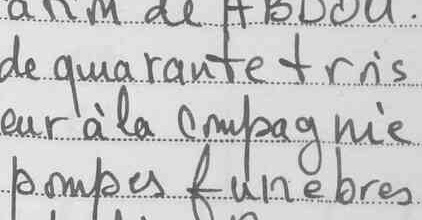 de ABBOU.
de quarante trois
eur à la Compagnie
pompes funebres